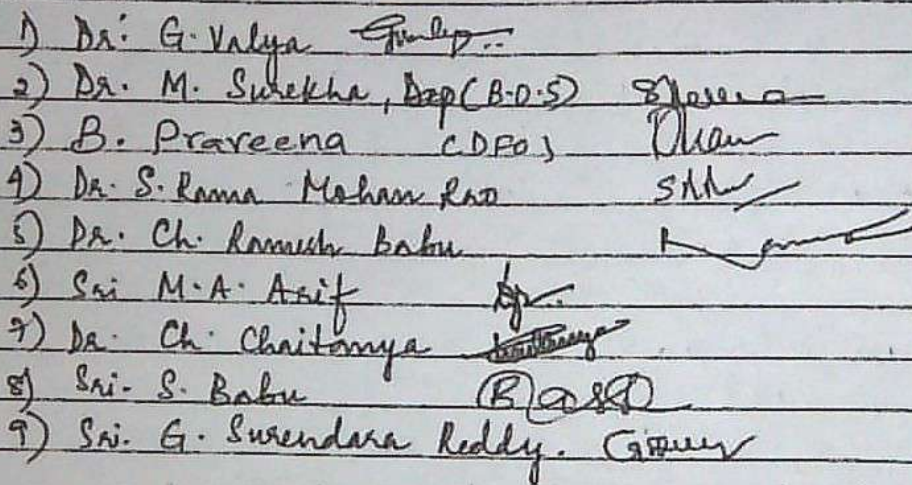 1) Dr. G. Valya
2) Dr. M. Surekha, Dep (B.O.S)
3) B. Praveena (DFO)
4) Dr. S. Rama Mohan Rao
5) Dr. Ch. Ramesh Babu
6) Sri M.A. Arif
7) Dr. Ch. Chaitanya
8) Sri. S. Babu
9) Sri. G. Surendara Reddy.